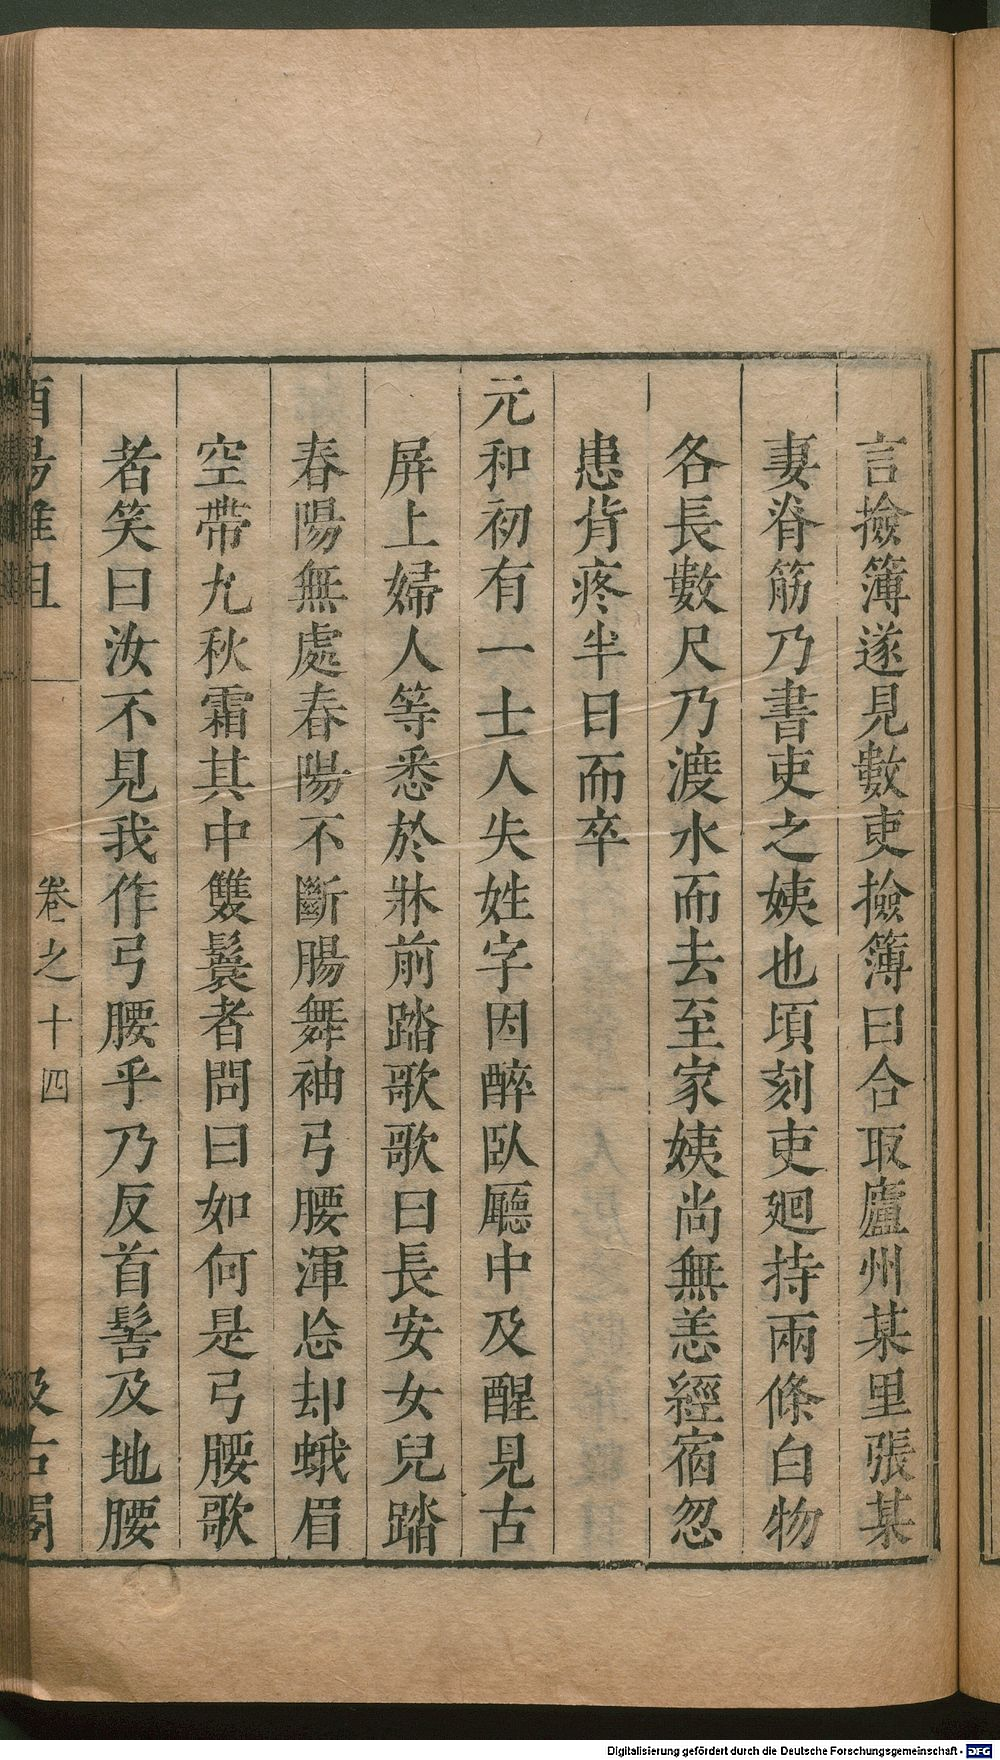 言撿簿遂見數吏撿簿曰合取廬州某里張某
妻脊筋乃書吏之姨也頃刻吏廻持兩條白物
各長數尺乃渡水而去至家姨尚無恙經宿忽
患背疼半日而卒
元和初有一士人失姓字因醉臥廳中及醒見古
屏上婦人等悉於牀前踏歌歌曰長安女兒踏
春陽無處春陽不斷腸舞袖弓腰渾忘却蛾眉
空帶九秋霜其中雙鬟者問曰如何是弓腰歌
者笑曰汝不見我作弓腰乎乃反首髻及地腰
酉陽雜俎
卷之十四
汲古閣
Digitalisierung gefördert durch die Deutsche Forschungsgemeinschaft - DFG